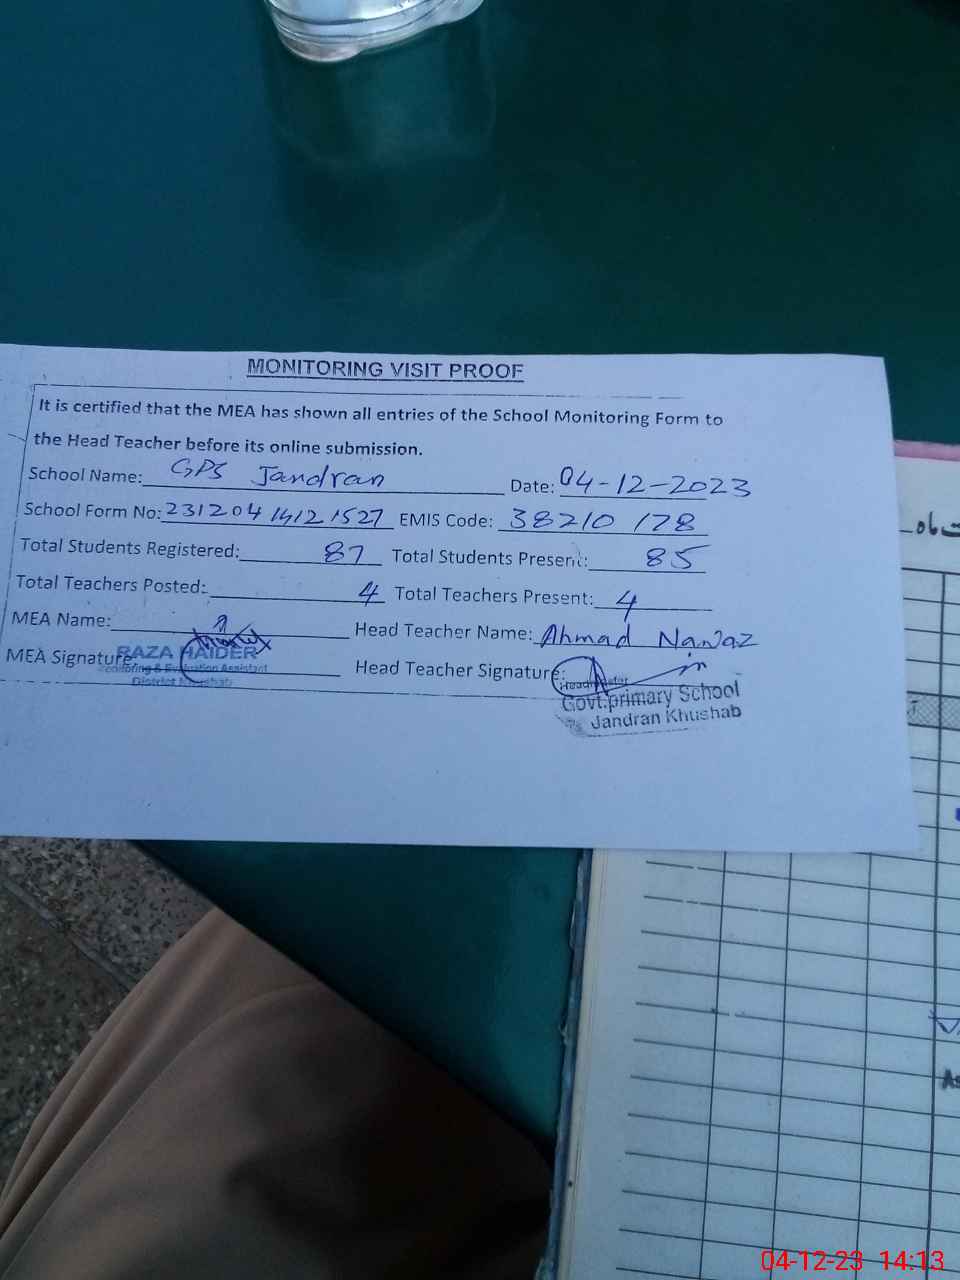 MONITORING VISIT PROOF
It is certified that the MEA has shown all entries of the School Monitoring Form to
the Head Teacher before its online submission.
School Name: GPS Jandran Date: 04-12-2023
School Form No: 23120414121527 EMIS Code: 38210178
Total Students Registered: 87 Total Students Present: 85
Total Teachers Posted: 4 Total Teachers Present: 4
MEA Name: Head Teacher Name: Ahmad Nawaz
MEA Signature Head Teacher Signature:
RAZA HAIDER
Monitoring & Evaluation Assistant
District Khushab
Headmaster
Govt.primary School
Jandran Khushab
ت ماہ
04-12-23 14:13